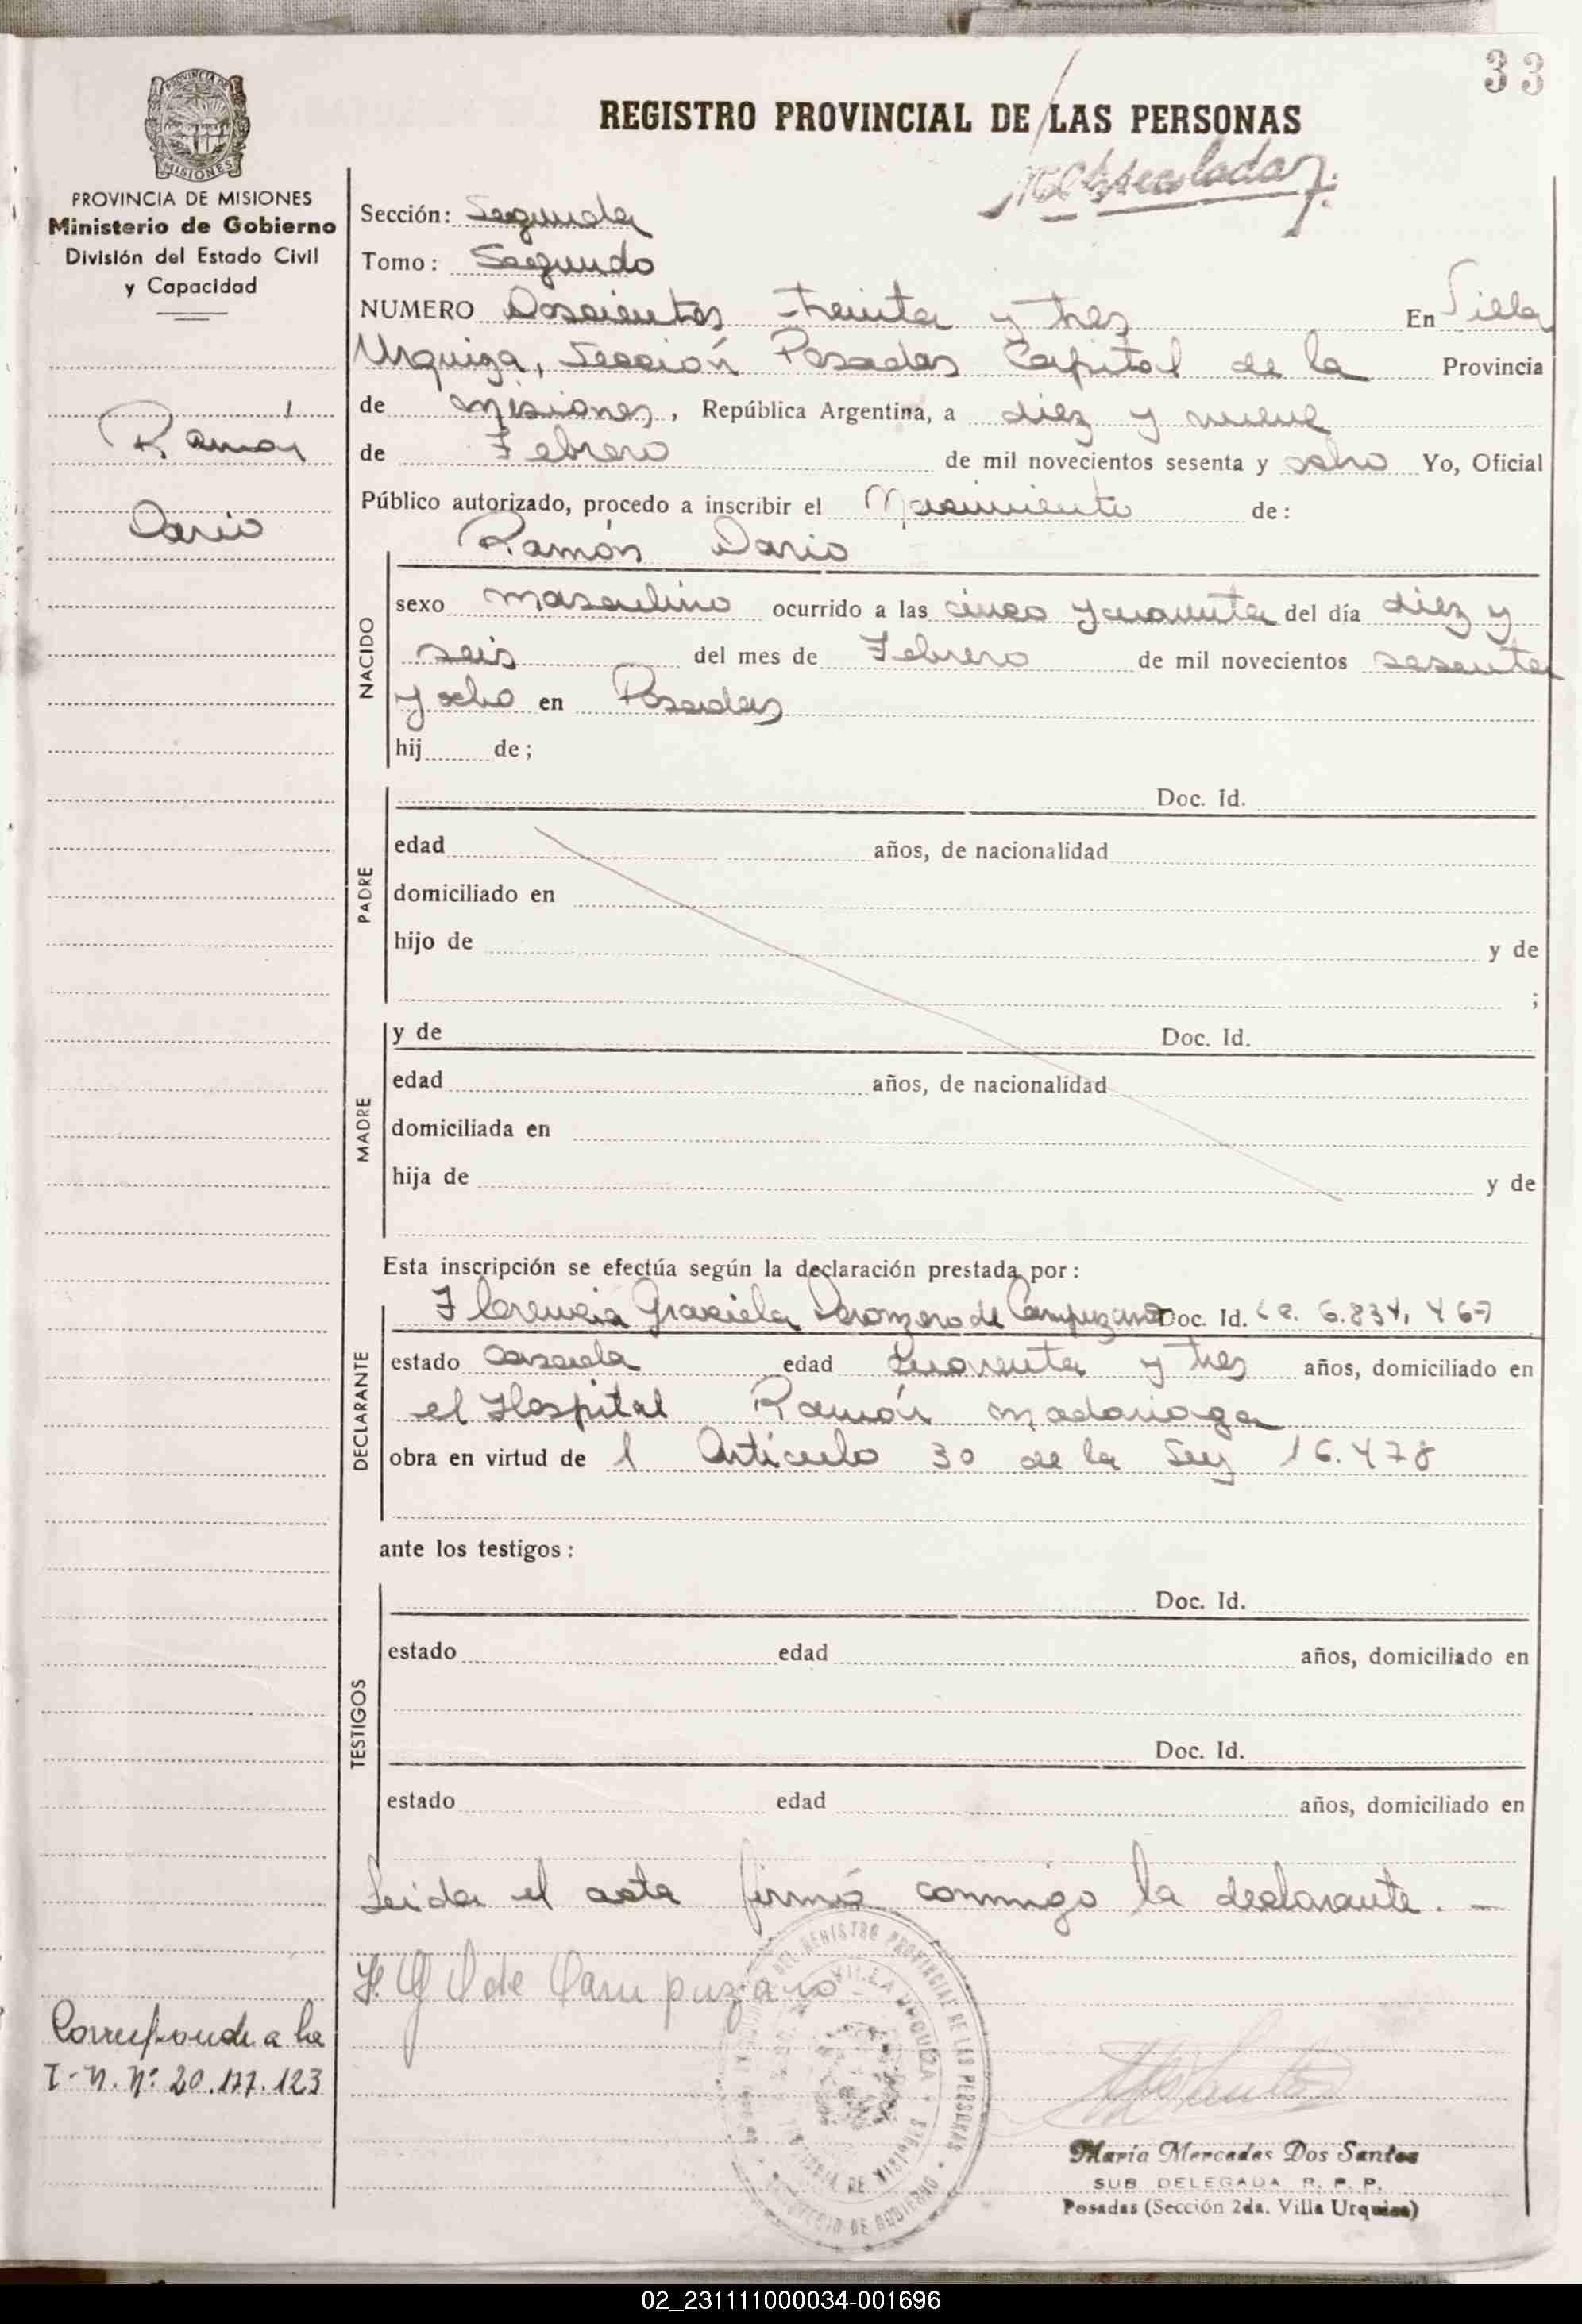 33
REGISTRO PROVINCIAL DE LAS PERSONAS
MISIONES
PROVINCIA DE MISIONES
Ministerio de Gobierno
División del Estado Civil
y Capacidad
Ramón
Dario
Sección: Segunda
Tomo: Segundo
NUMERO Doscientos treinta y tres En Villa
Urquiza, Sección Posadas Capital de la Provincia
de Misiones, República Argentina, a diez y nueve
de Febrero de mil novecientos sesenta y ocho Yo, Oficial
Público autorizado, procedo a inscribir el Nacimiento de:
Ramón Dario
NACIDO
sexo masculino ocurrido a las cinco y cuarenta del día diez y
seis del mes de Febrero de mil novecientos sesenta
y ocho en Posadas
hij de;
PADRE
Doc. Id.
edad años, de nacionalidad
domiciliado en
hijo de y de
;
MADRE
y de Doc. Id.
edad años, de nacionalidad
domiciliada en
hija de y de
Esta inscripción se efectúa según la declaración prestada por:
DECLARANTE
Florencia Graciela de Campuzano Doc. Id. 6.834.467
estado casada edad cuarenta y tres años, domiciliado en
el Hospital Ramón Madariaga
obra en virtud de l Artículo 30 de la Ley 16.478
ante los testigos:
TESTIGOS
Doc. Id.
estado edad años, domiciliado en
Doc. Id.
estado edad años, domiciliado en
Leida el acta firmó conmigo la declarante. -
de Campuzano
Corresponde a la
T-N. Nº 20.177.123
VILLA URQUIZA
María Mercedes Dos Santos
SUB DELEGADA R. P. P.
Posadas (Sección 2da. Villa Urquiza)
02_231111000034-001696